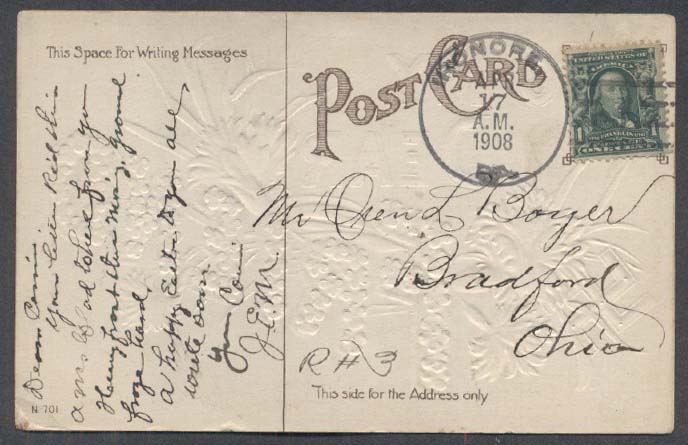 This Space For Writing Messages
POST CARD
APR
17
A.M.
1908
UNITED STATES OF AMERICA
FRANKLIN
1 ONE CENT 1
Dear Cousin.
Your letter Rec'd this
a.m. Glad to hear from you
Heavy frost this morn'g ground
froze hard.
A happy Easter to you all
write soon.
Your Cousin
J.E.M.
Mr Oren L Boyer
Bradford
Ohio
R # 3
N 701
This side for the Address only